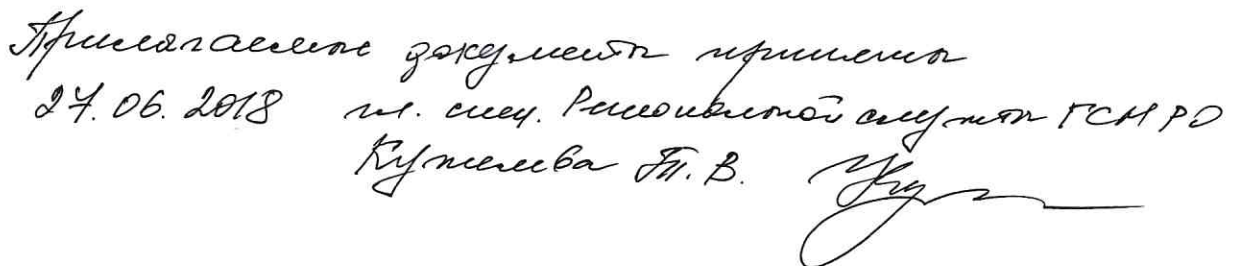 Прилагаемые документы приняты
27.06.2018 гл. спец. Региональной службы ГСН РО
Кужелева Т. В.